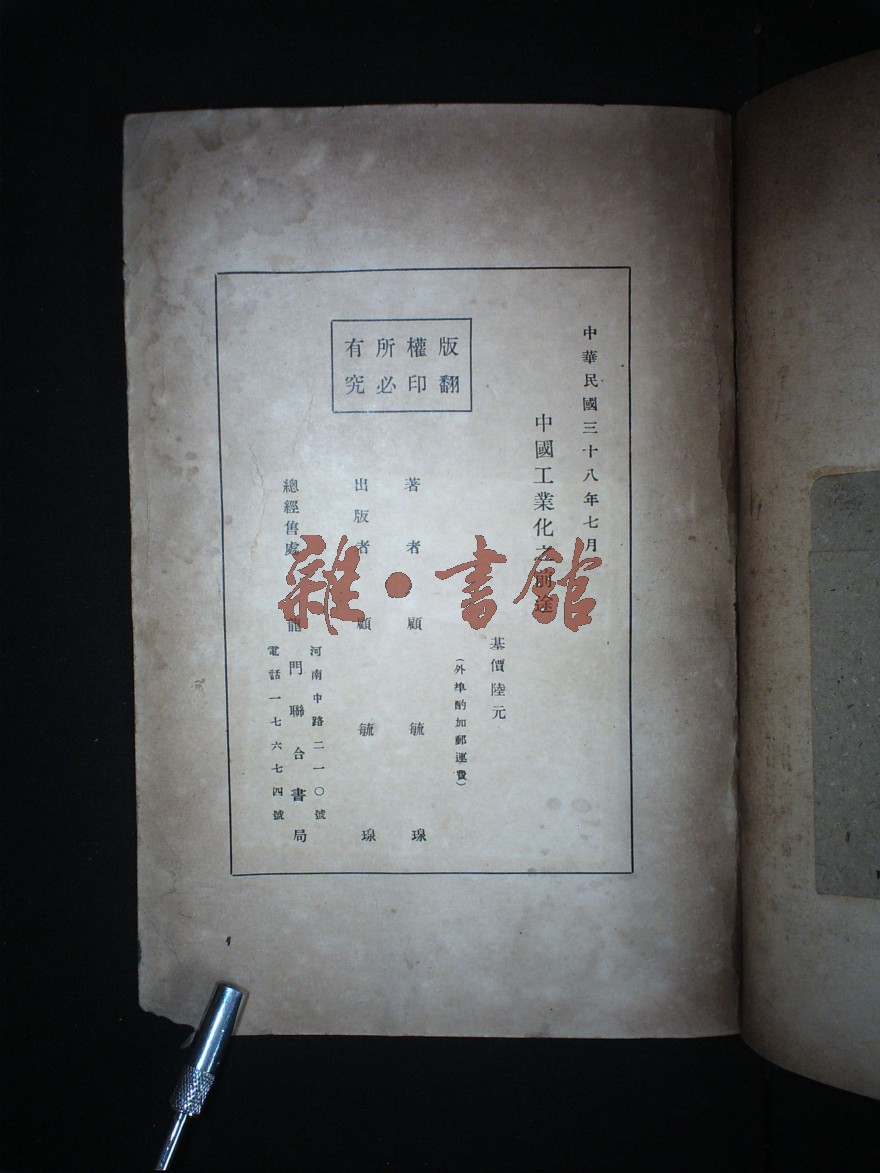 中華民國三十八年七月
中國工業化之前途
基價陸元
(外埠酌加郵運費)
版權所有
翻印必究
著者 顧毓瑔
出版者 顧毓瑔
總經售處 龍門聯合書局
河南中路二一〇號
電話一七六七四號
雜·書館